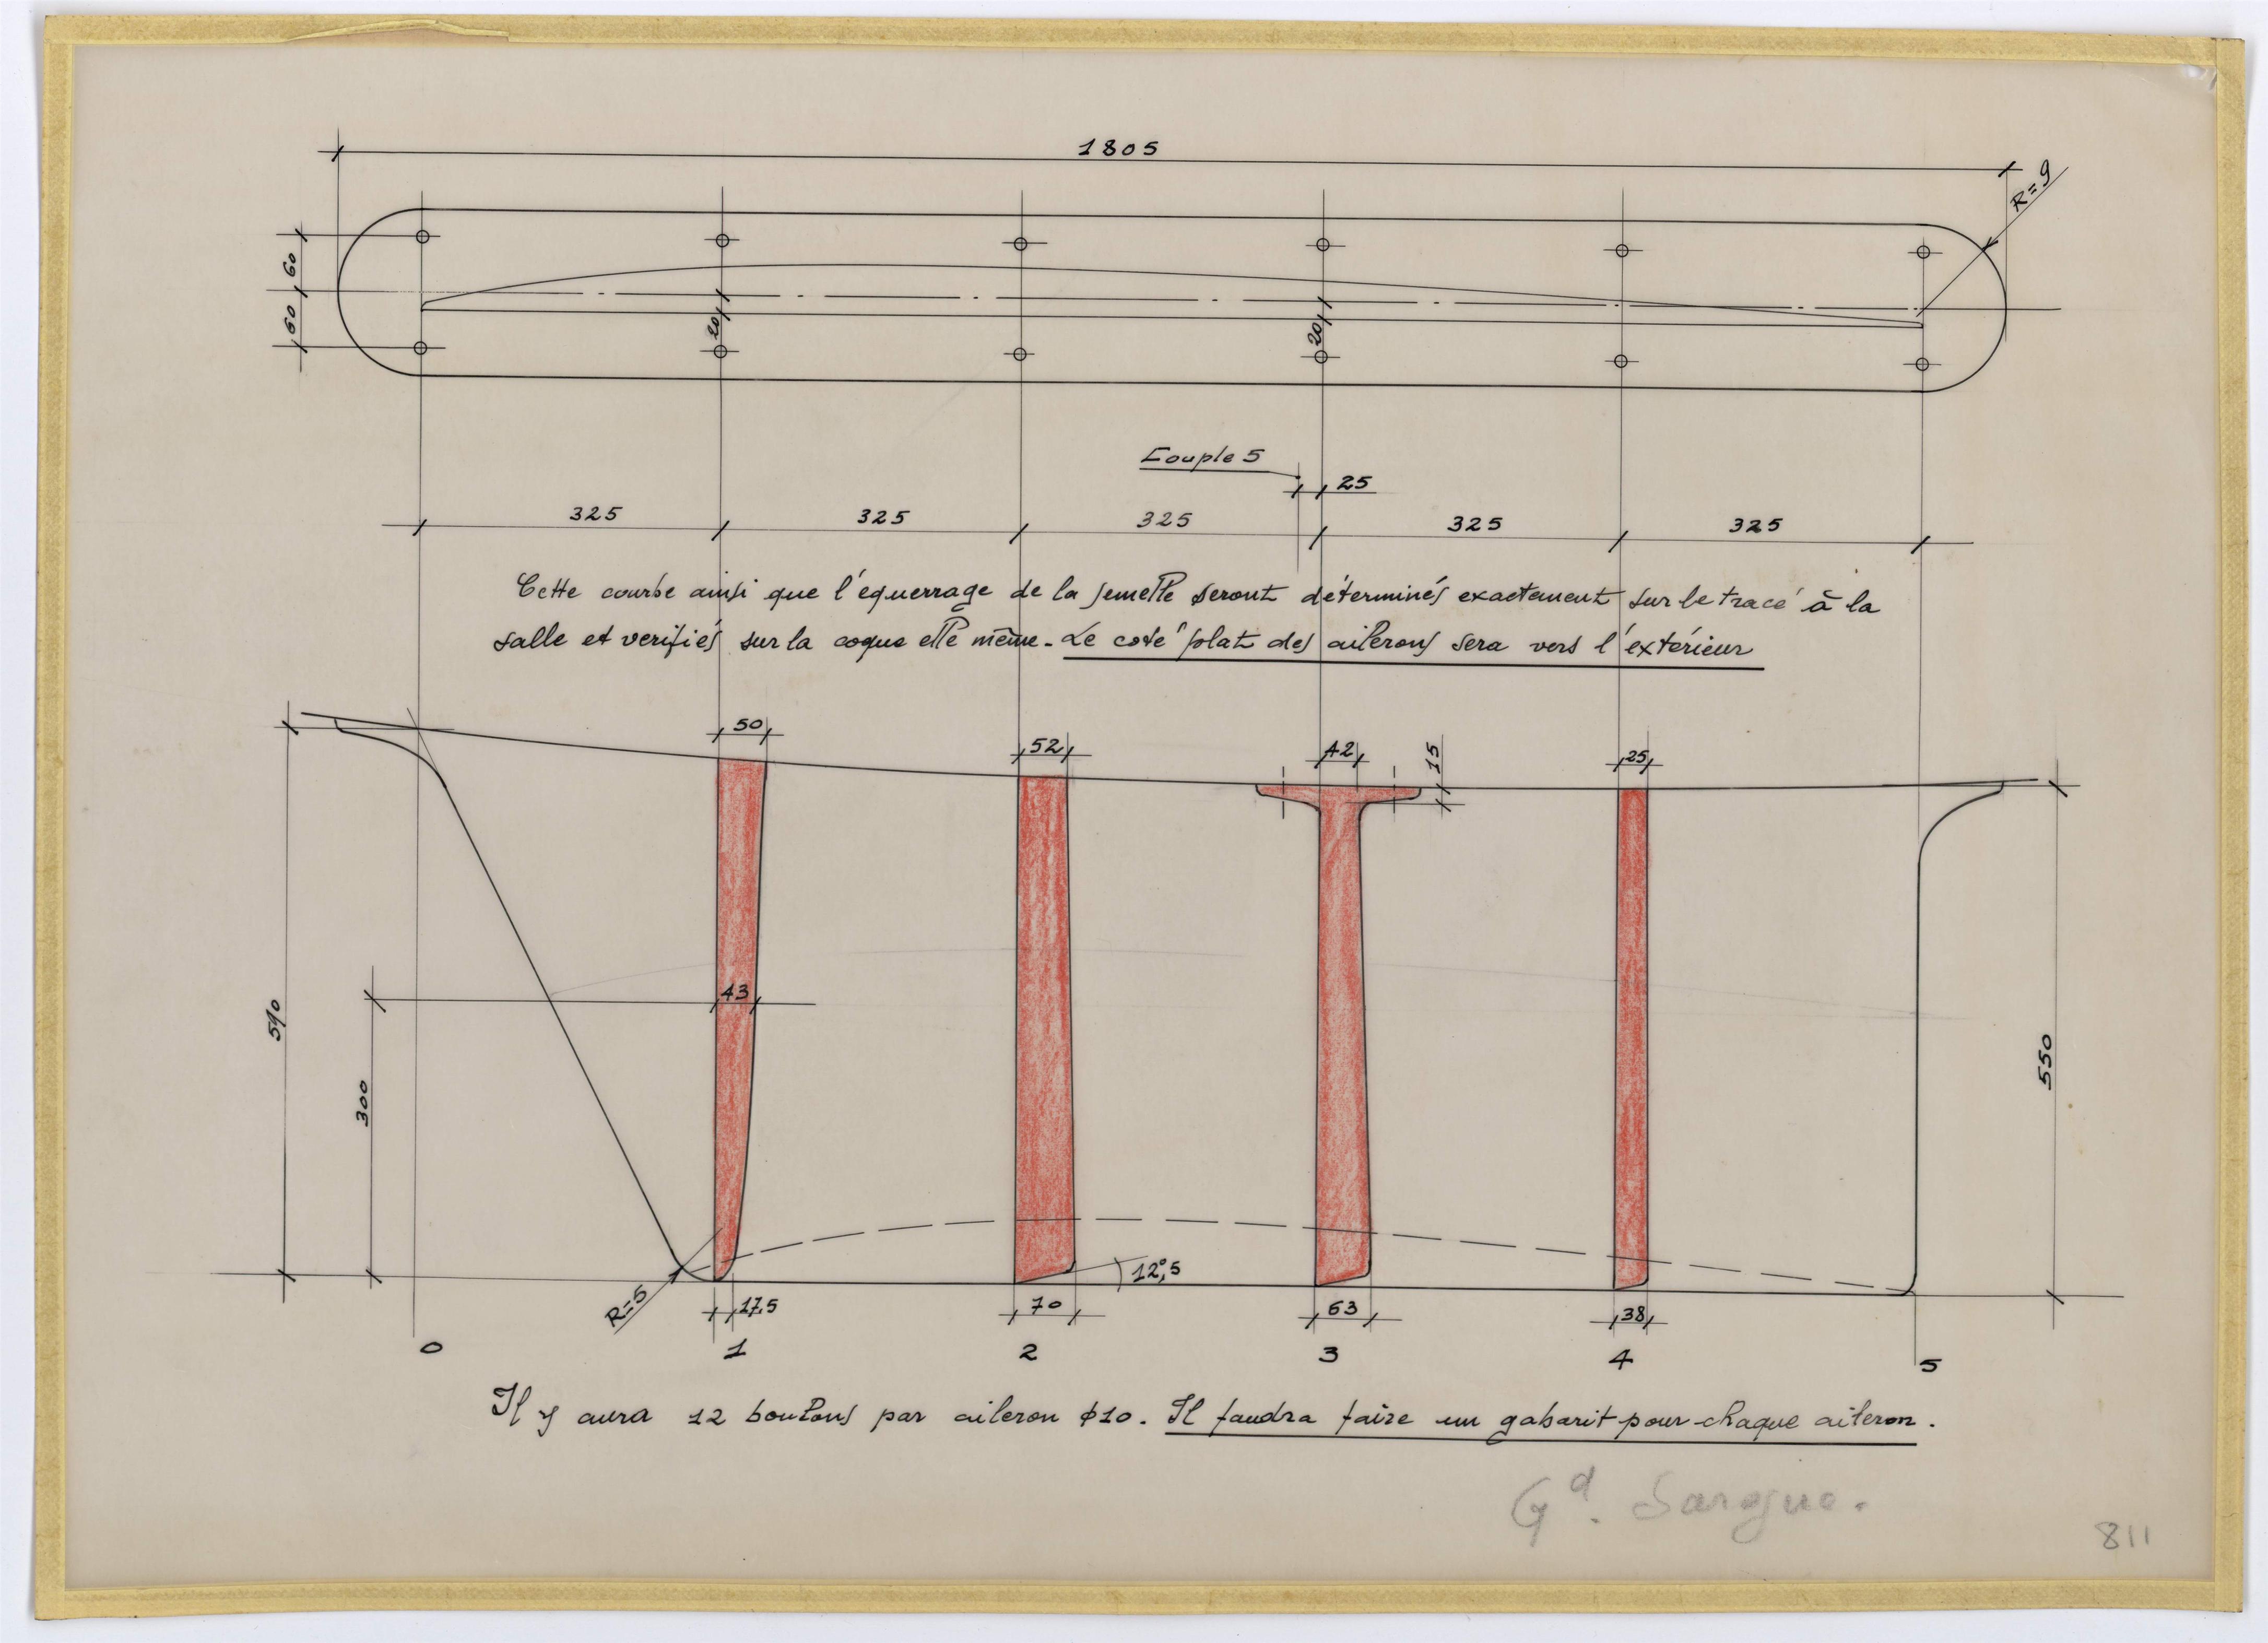 1805
R=9
60
60
20
20
Couple 5
25
325 325 325 325 325
Cette courbe ainsi que l'équerrage de la semelle seront déterminés exactement sur le tracé à la
salle et verifiés sur la coque elle même - Le coté plat des ailerons sera vers l'extérieur
50
52
42
15
25
43
590
300
550
R=5
12°,5
17,5
70
63
38
0 1 2 3 4 5
Il y aura 12 boulons par aileron φ10. Il faudra faire un gabarit pour chaque aileron.
Gd.
811